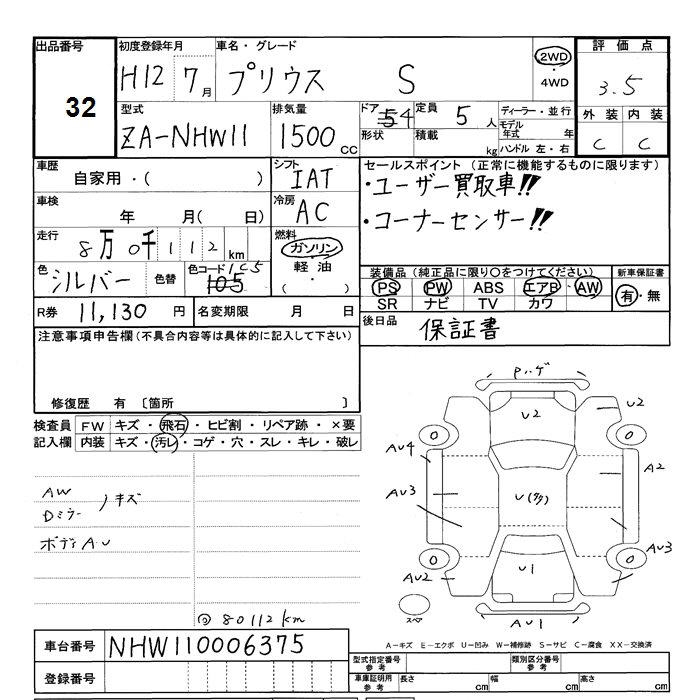 出品番号 初度登録年月 車名・グレード 評価点
32 H12 7月 プリウス S 2WD・4WD 3.5
型式 排気量 ドア 定員 ディーラー・並行 外装 内装
ZA-NHW11 1500cc 54 5人 モデル年式 年 C C
形状 積載 kg ハンドル 左・右
車歴 シフト セールスポイント (正常に機能するものに限ります)
自家用・( ) IAT ・ユーザー買取車!!
車検 冷房
年 月( 日) AC ・コーナーセンサー!!
走行 燃料
8万0千112km ガソリン・軽油・( )
色 色替 色コード 1C5 装備品 (純正品に限り○をつけてください) 新車保証書
シルバー 105 PS PW ABS エアB AW 有・無
SR ナビ TV カワ
R券 11,130円 名変期限 月 日 後日品 保証書
注意事項申告欄 (不具合内容等は具体的に記入して下さい)
修復歴 有 〔箇所 〕
検査員 FW キズ・飛石・ヒビ割・リペア跡・×要
記入欄 内装 キズ・汚レ・コゲ・穴・スレ・キレ・破レ
AW
Dミラー
キズ
ボディAU
Pハゲ
U2 U2
AU4
A2
AU3 U(多)
AU3
U1
AU2
スペア AU1
◎80112km
車台番号 NHW110006375
登録番号
A-キズ E-エクボ U-凹み W-補修跡 S-サビ C-腐食 XX-交換済
型式指定番号 参考 類別区分番号 参考
車庫証明用 参考 長さ cm 幅 cm 高さ cm